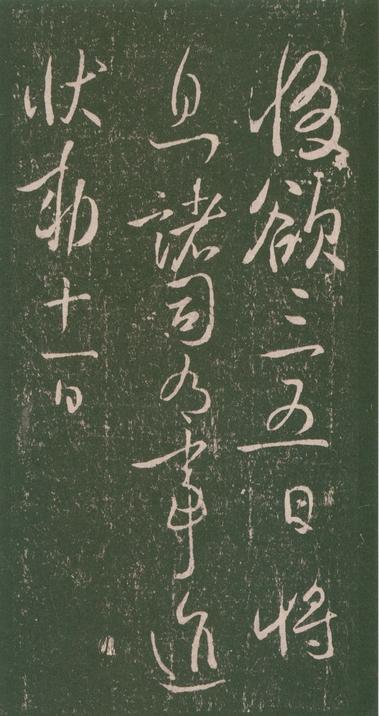 後欲三五日將
息諸司有事進
狀勅十一日